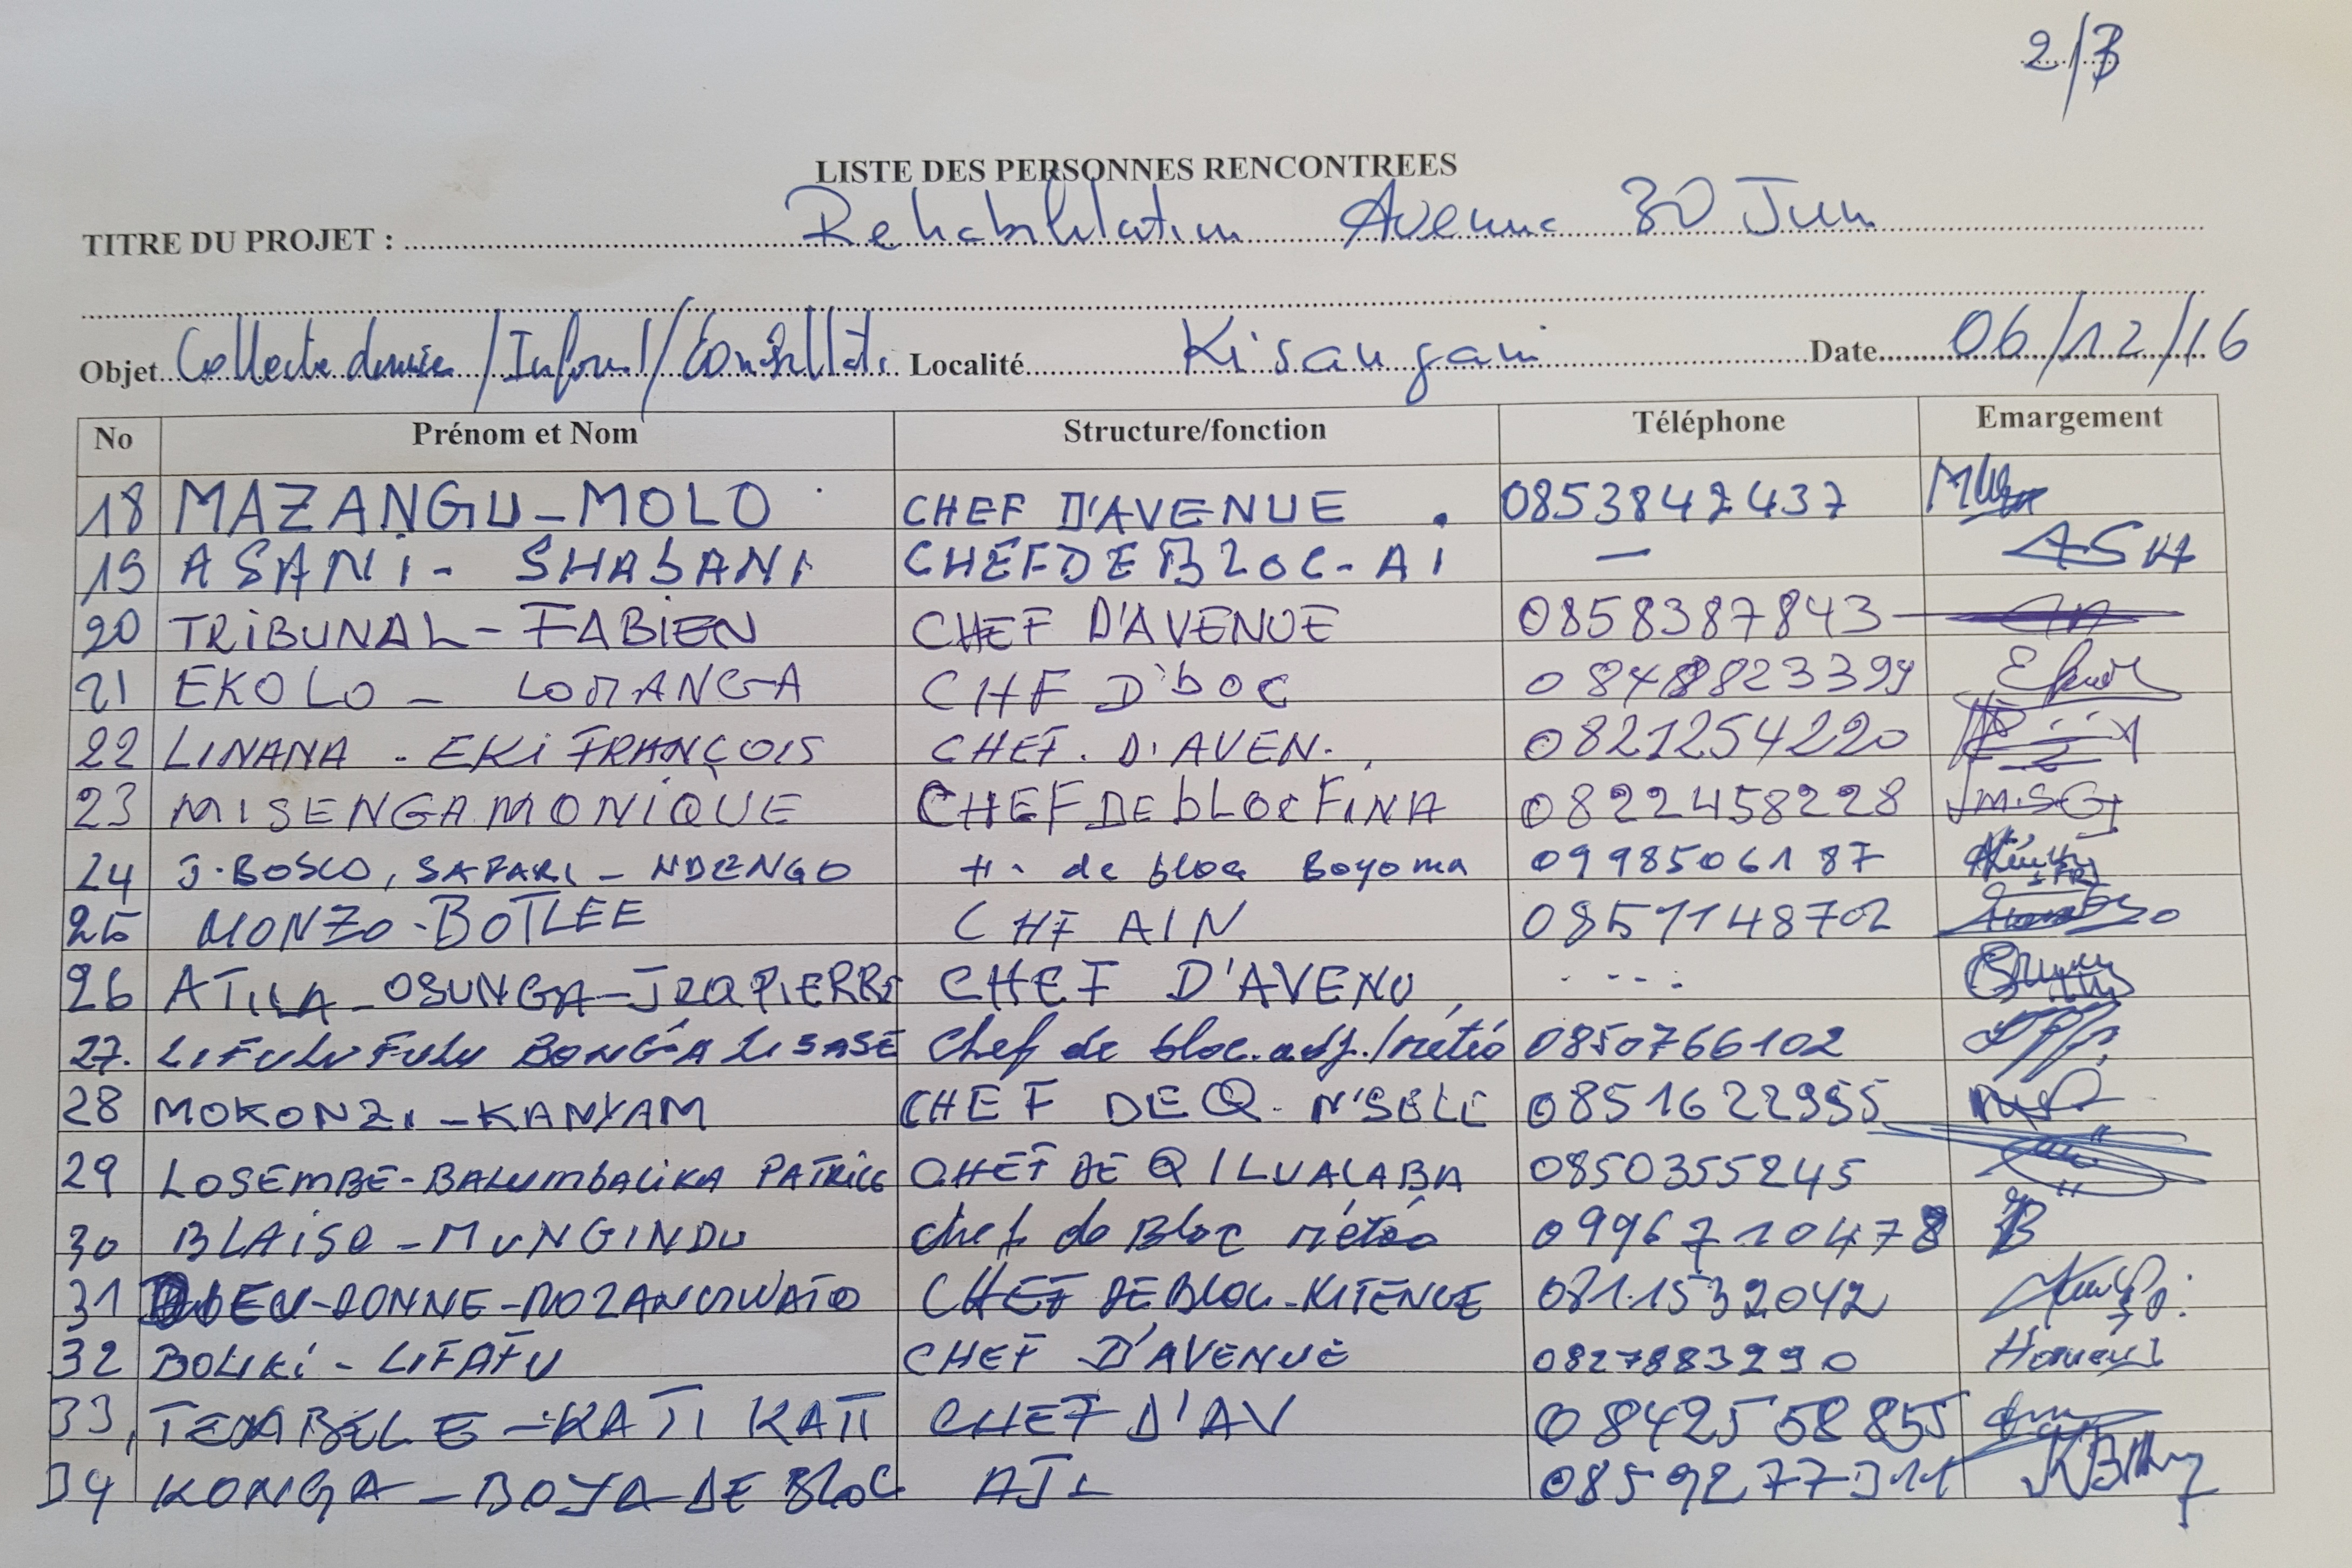 2/3
LISTE DES PERSONNES RENCONTREES
TITRE DU PROJET : Rehabilitation Avenue 30 Juin
Objet Collecte donnée / Inform / Localité Kisangani Date 06/12/16
No Prénom et Nom Structure/fonction Téléphone Emargement
18 MAZANGU-MOLO CHEF D'AVENUE 0853842437
19 ASANI - SHABANI CHEF DE BLOC-A1 — ASH
20 TRIBUNAL-FABIEN CHEF D'AVENUE 0858387843
21 EKOLO - LOMANGA CHF D'bOC
22 LINANA - EKI FRANÇOIS CHEF. D'AVEN. 0821254220
23 MISENGA MONIQUE CHEF DE bLOC FINA 0822458228
24 J.BOSCO, SAFARI - NDENGO de bloc Boyoma 0998506187
25 MONZO-BOTLEE CHF AIN 0857148702
26 ATILA-OSUNGA- CHEF D'AVENU
27. LIFULUFULU BONGA LISASE Chef de bloc adj./météo 0850766102
28 MOKONZI-KANYAM CHEF DE Q. 0851622955
29 LOSEMBE-BALUMBALIKA PATRICE CHEF DE Q/LUALABA 0850355245
30 BLAISE-MUNGINDU chef de Bloc météo 0996710478 B
31 DIEU-DONNE- CHEF DE BLOC-KITENGE 0811532042
32 BOLIKI - LIFAFU CHEF D'AVENUE 0827883290
33, -KATI KATI CHEF D'AV 0842558855
34 KONGA-BOYA-DE BLOC 0859277311